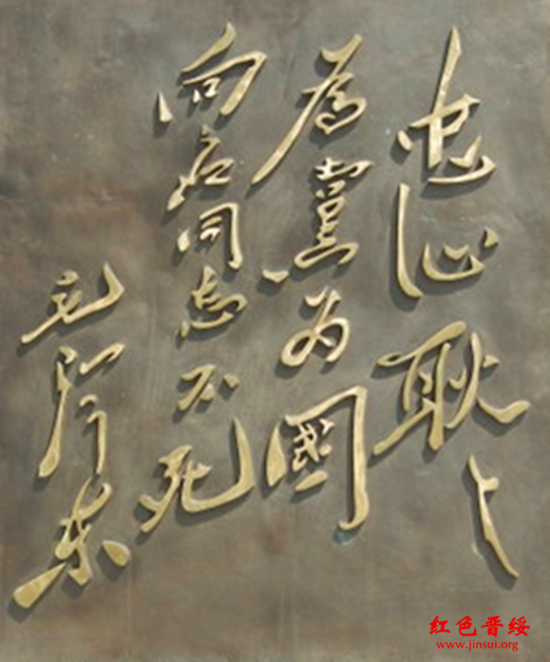 忠心耿々
為黨为國
向应同志不死
毛泽东
红色晋绥
www.jinsui.org